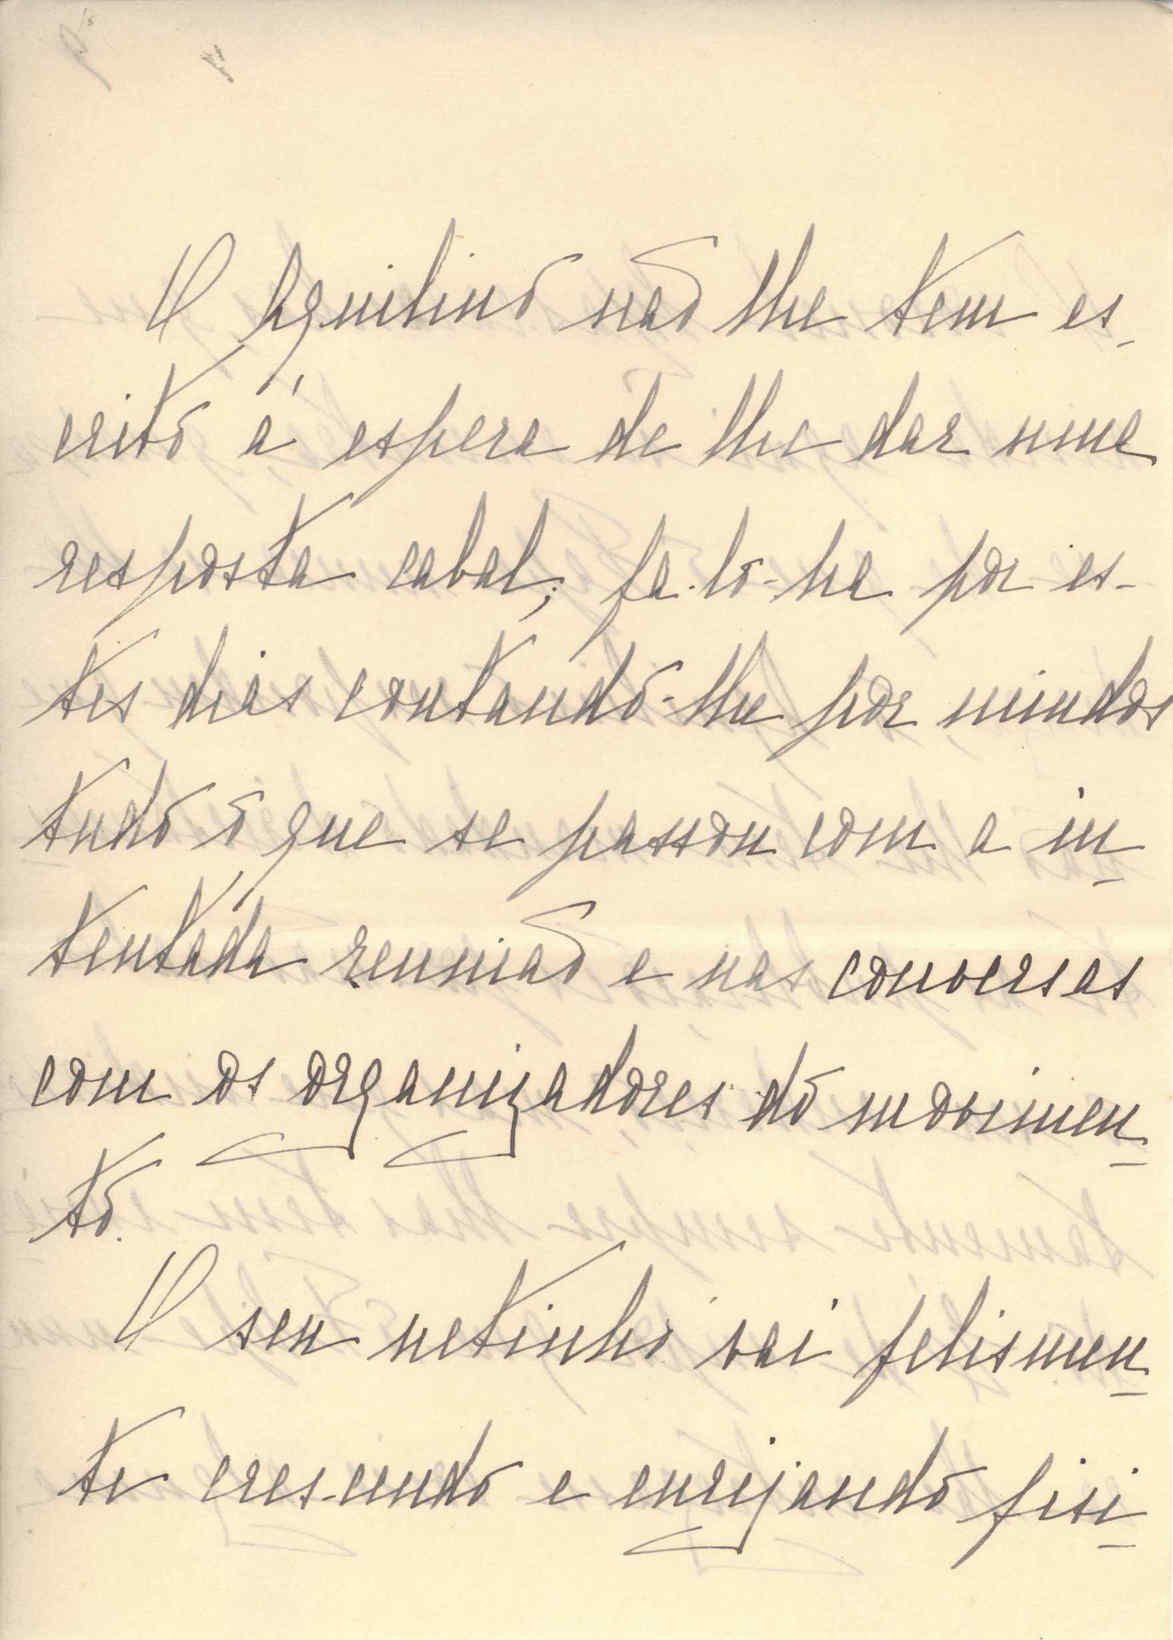 O Aquilino não lhe tem es-
crito á espera de lhe dar uma
resposta cabal; fa-lo-ha por es-
tes dias contando-lhe por miudos
tudo o que se passou com a in-
tentada reunião e nas conversas
com os organizadores do movimen-
to.
O seu netinho vai felismen-
te crescendo e enrijando fisi-